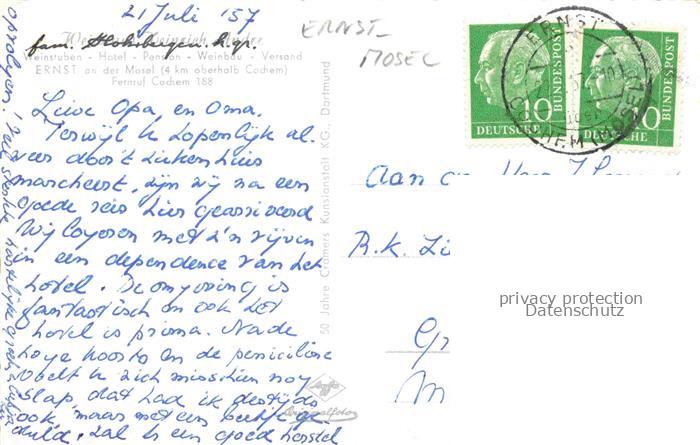 21 Juli '57
ERNST-
MOSEL
fam.
Weingut Heinrich
Weinstuben - Hotel - Pension - Weinbau - Versand
ERNST an der Mosel (4 km oberhalb Cochem)
Fernruf Cochem 188
Lieve Opa en Oma.
Terwijl U hopenlijk al
weer door 't ziekenhuis
marcheert, zijn wij na een
goede reis hier gearriveerd
Wij logeren met z'n vijven
in een dependence van het
hotel. De omgeving is
fantastisch en ook het
hotel is prima. Na de
hoge koorts en de penicilline
voelt U zich misschien nog
slap, dat had ik destijds
ook, maar met een beetje ge-
duld, zal U een goed herstel
50 Jahre Cramers Kunstanstalt KG., Dortmund
Agfa
Originalfoto
ERNST
COCHEM (MOSEL)
10
DEUTSCHE
BUNDESPOST
10
DEUTSCHE
BUNDESPOST
Aan
R.K.
privacy protection
Datenschutz